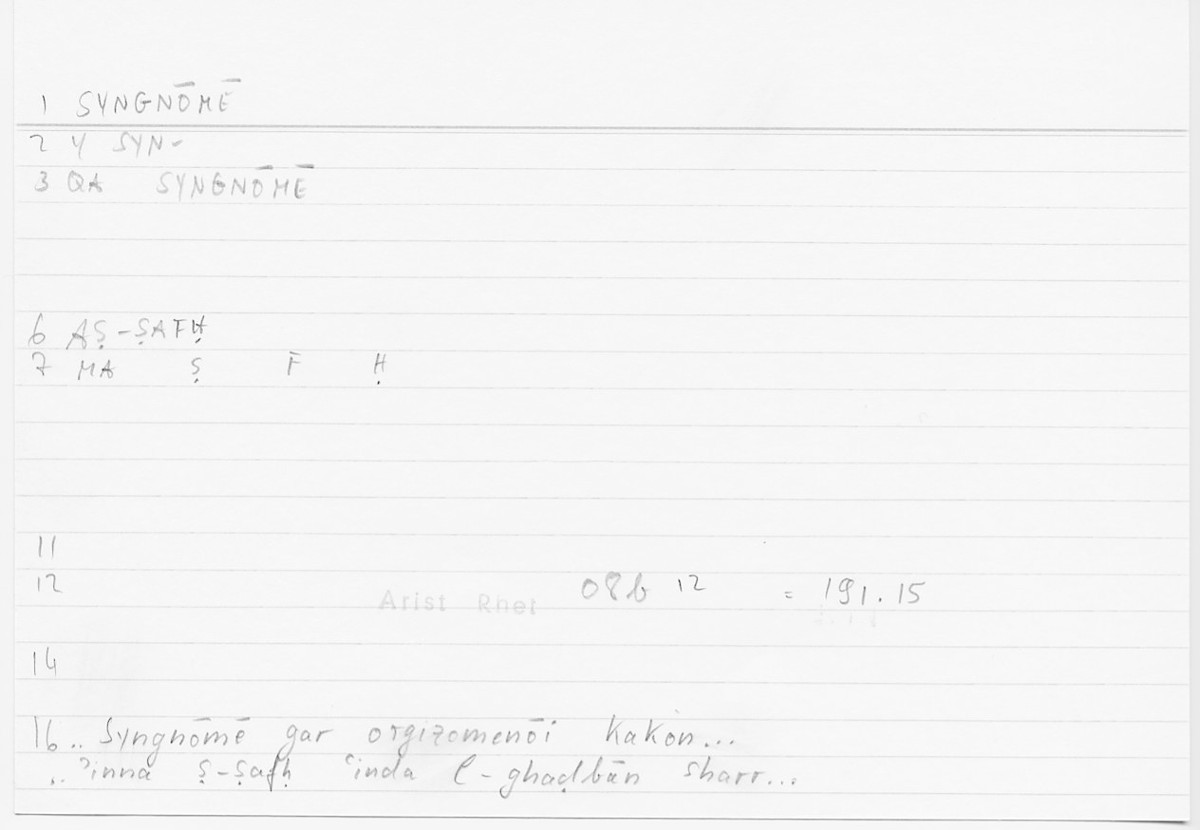 1 SYNGNŌMĒ
2 Y SYN-
3 QA SYNGNŌMĒ
6 AṢ-ṢAFḤ
7 MA Ṣ F Ḥ
11
12 Arist Rhet 08b 12 = 191.15
14
16 .. Syngnōmē gar orgizomenōi kakon...
.. ʾinna ṣ-ṣafḥ ʿinda l-ghaḍbān sharr...